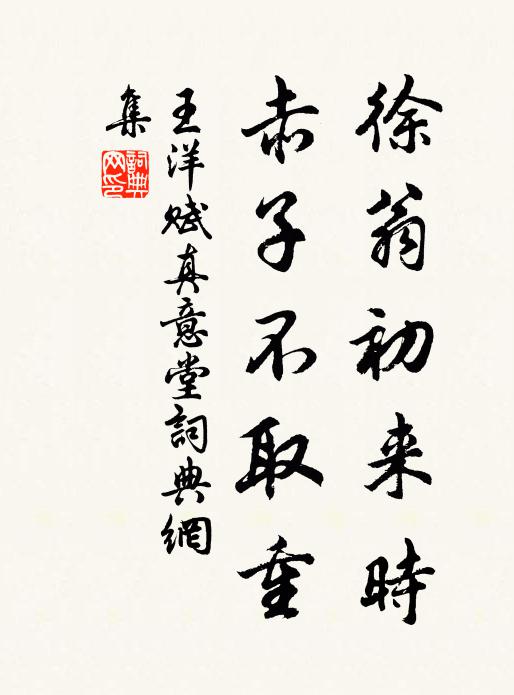 徐翁初来時
赤子不取重
王洋賦真意堂詞典網
集
詞典網印